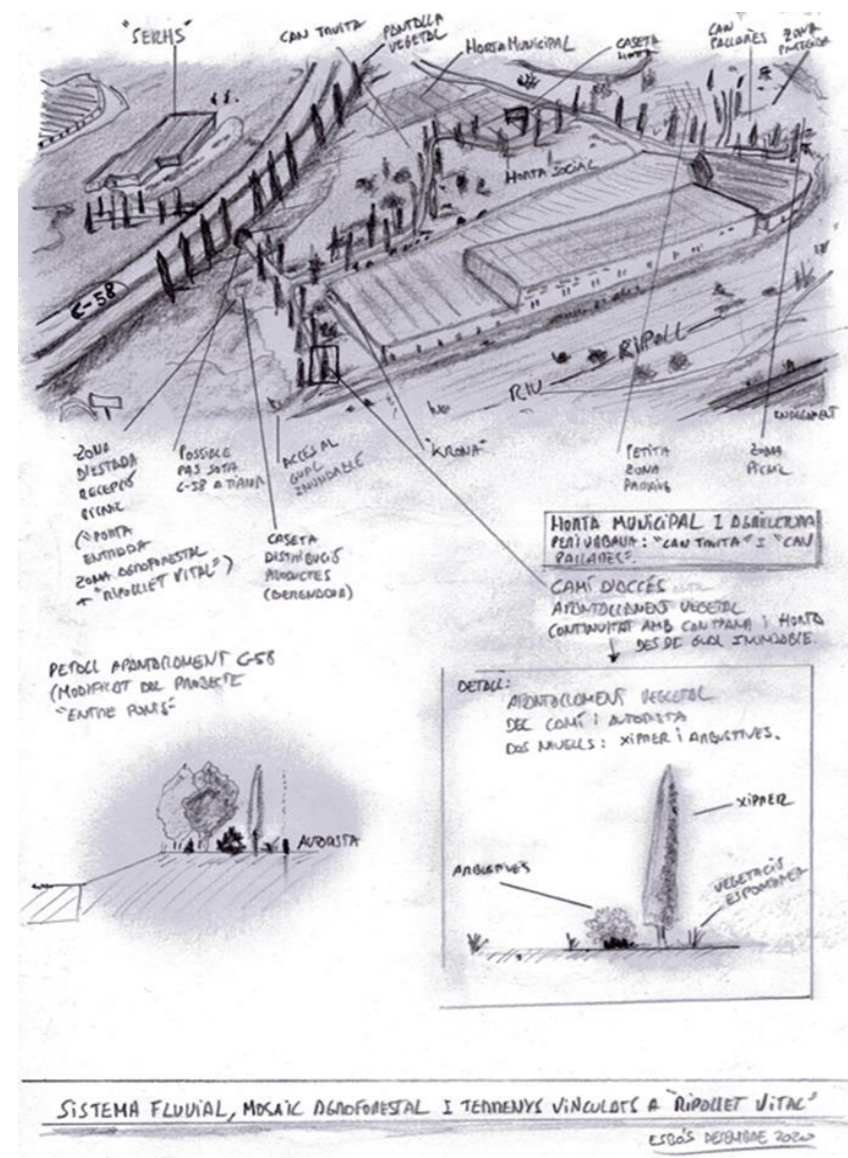 "SERHS"
CAN TRUITA
PANTALLA
VEGETAL
HORTA MUNICIPAL
CASETA
HORTA
CAN
PALLARÈS
ZONA
PROTEGIDA
HORTA SOCIAL
C-58
RIU RIPOLL
ZONA
D'ESTADA
RECEPCIÓ
PICNIC
("PORTA
ENTRADA
ZONA AGROFORESTAL
+ "RIPOLLET VITAL")
POSSIBLE
PAS SOTA
C-58 A TIANA
ACCÉS AL
GUAL
INUNDABLE
"KRONA"
PETITA
ZONA
PARKING
ZONA
PICNIC
CASETA
DISTRIBUCIÓ
PRODUCTES
HORTA MUNICIPAL I AGRICULTURA
PERIURBANA: "CAN TRUITA" I "CAN
PALLARÈS".
CAMÍ D'ACCÉS
APANTALLAMENT VEGETAL
CONTINUITAT AMB CAN TIANA I HORTA
DES DE GUAL INUNDABLE.
DETALL APANTALLAMENT C-58
(MODIFICAT DEL PROJECTE
"ENTRE PONTS"
AUTOPISTA
DETALL:
APANTALLAMENT VEGETAL
DEL CAMÍ I AUTOPISTA
DOS NIVELLS: XIPRER I ARBUSTIVES.
XIPRER
ARBUSTIVES
VEGETACIÓ
ESPONTÀNEA
SISTEMA FLUVIAL, MOSAIC AGROFORESTAL I TERRENYS VINCULATS A "RIPOLLET VITAL"
ESBÓS DESEMBRE 2020